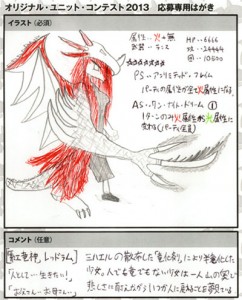 オリジナル・ユニット・コンテスト2013 応募専用はがき
イラスト(必須)
属性…火→無
HP…6666
攻…24444
10600
☆☆☆☆☆☆
PS…アンリミテッド・フレイム
パーティの属性が全て火属性になる。
AS…リン・ナイト・ドリーム ①
1ターンのみ火属性が光属性に
変わる(パーティ全員)
コメント(任意)
【紅竜神、レッドラム】
「人として…生きたい!」
「お父さん…お母さん…」
ミハエルの散布した「竜化剤」により半竜化した
少女。人でも竜でもない少女は一人
悲しさに耐えながらいつか人に戻ることを願っている